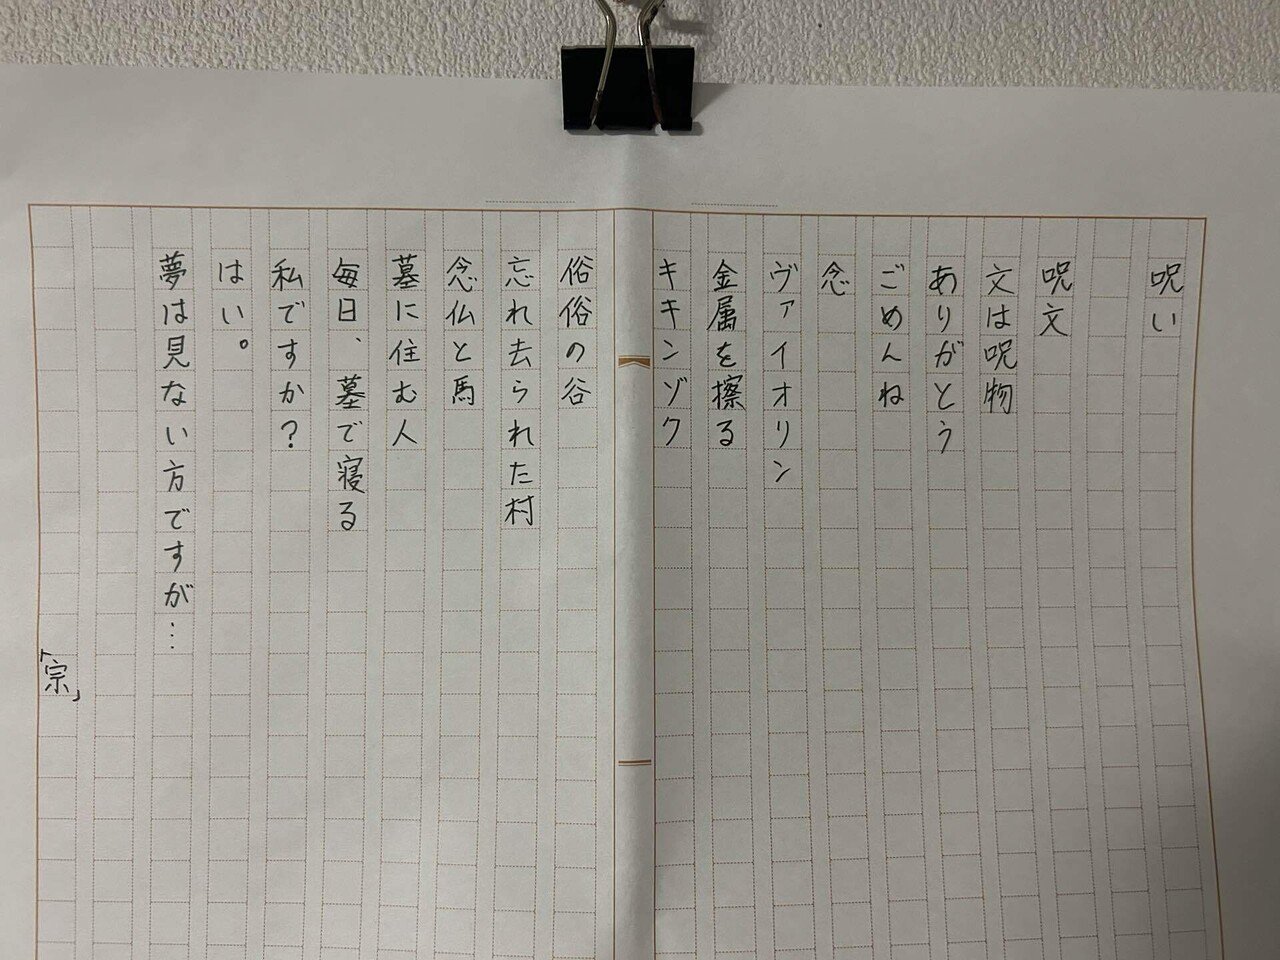 呪い
呪文
文は呪物
ありがとう
ごめんね
念
ヴァイオリン
金属を擦る
キキンゾク
俗俗の谷
忘れ去られた村
念仏と馬
墓に住む人
毎日、墓で寝る
私ですか?
はい。
夢は見ない方ですが…
「宗」